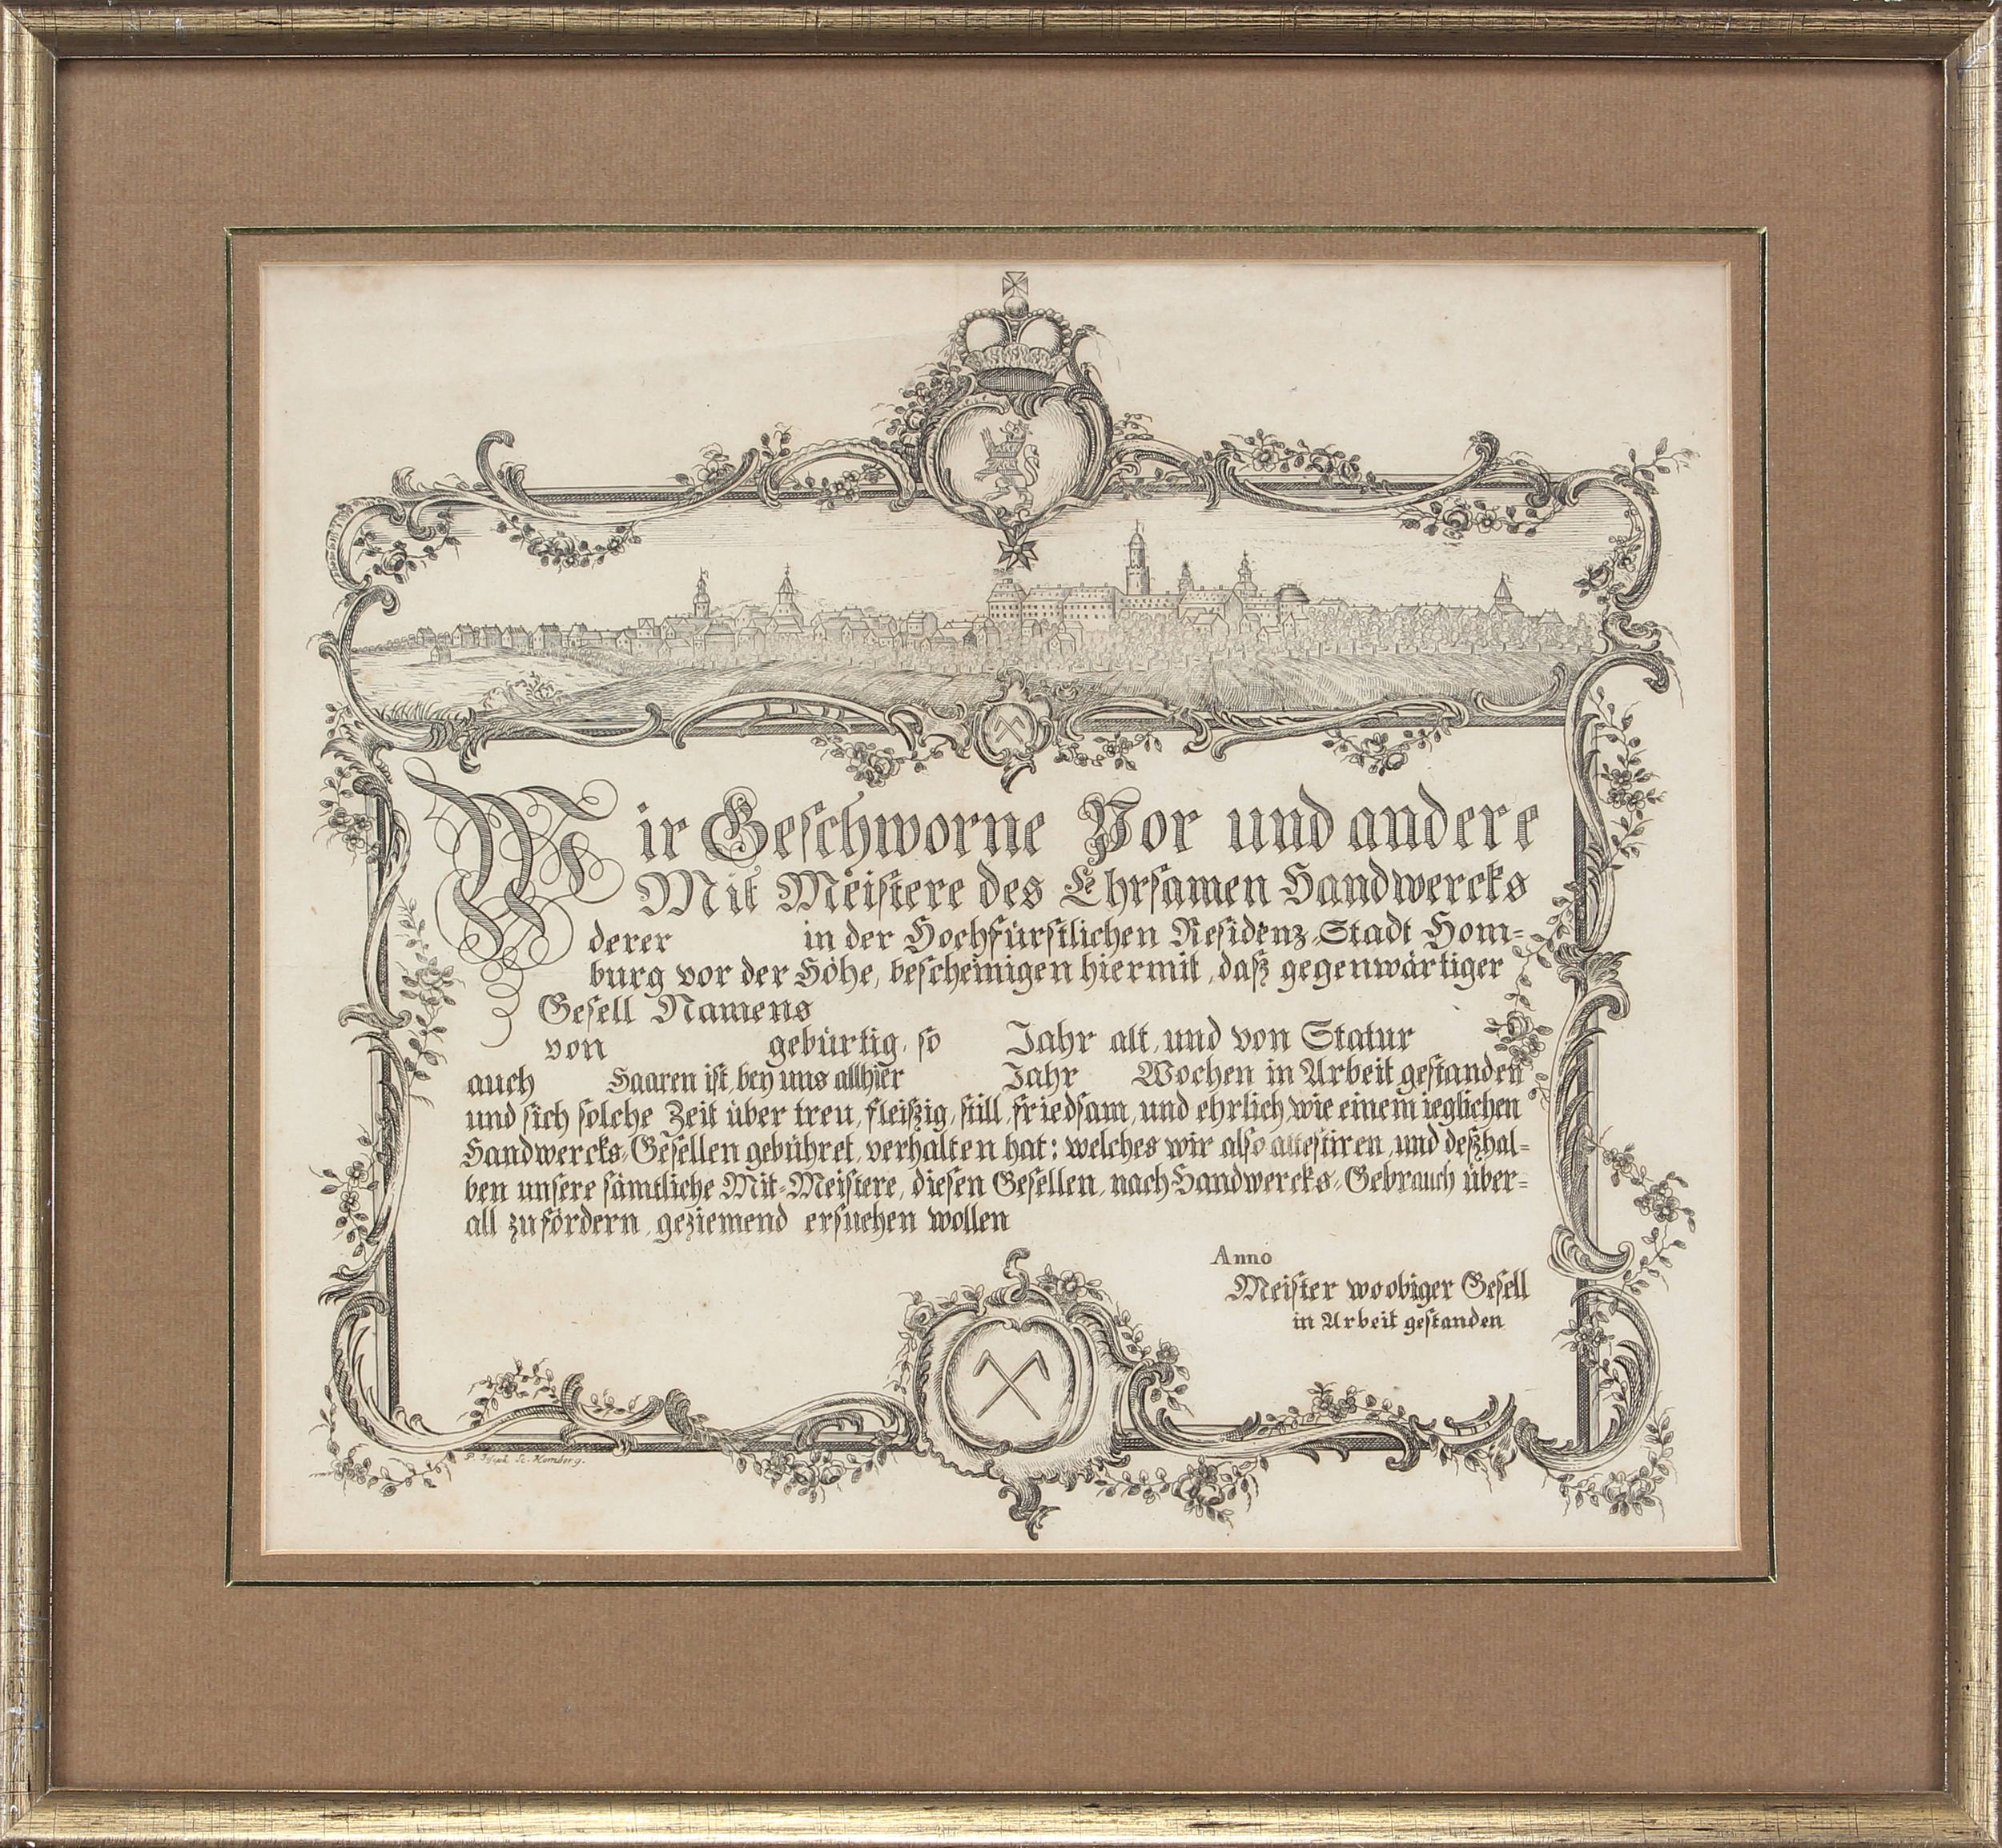 Wir Geschworne Vor und andere
Mit Meistere des Ehrsamen Handwercks
derer in der Hochfürstlichen Residenz-Stadt Hom=
burg vor der Höhe, bescheinigen hiermit, daß gegenwärtiger
Gesell Namens
von gebürtig, so Jahr alt, und von Statur
auch Haaren ist, bey uns allhier Jahr Wochen in Arbeit gestanden
und sich solche Zeit über treu, fleißig, still, friedsam, und ehrlich, wie einem ieglichen
Handwercks-Gesellen gebühret, verhalten hat; welches wir also attestiren, und deßhal=
ben unsere sämtliche Mit-Meistere, diesen Gesellen, nach Handwercks-Gebrauch über=
all zu fördern, geziemend ersuchen wollen
Anno
Meister wo obiger Gesell
in Arbeit gestanden
P. Joseph Sc. Homberg.